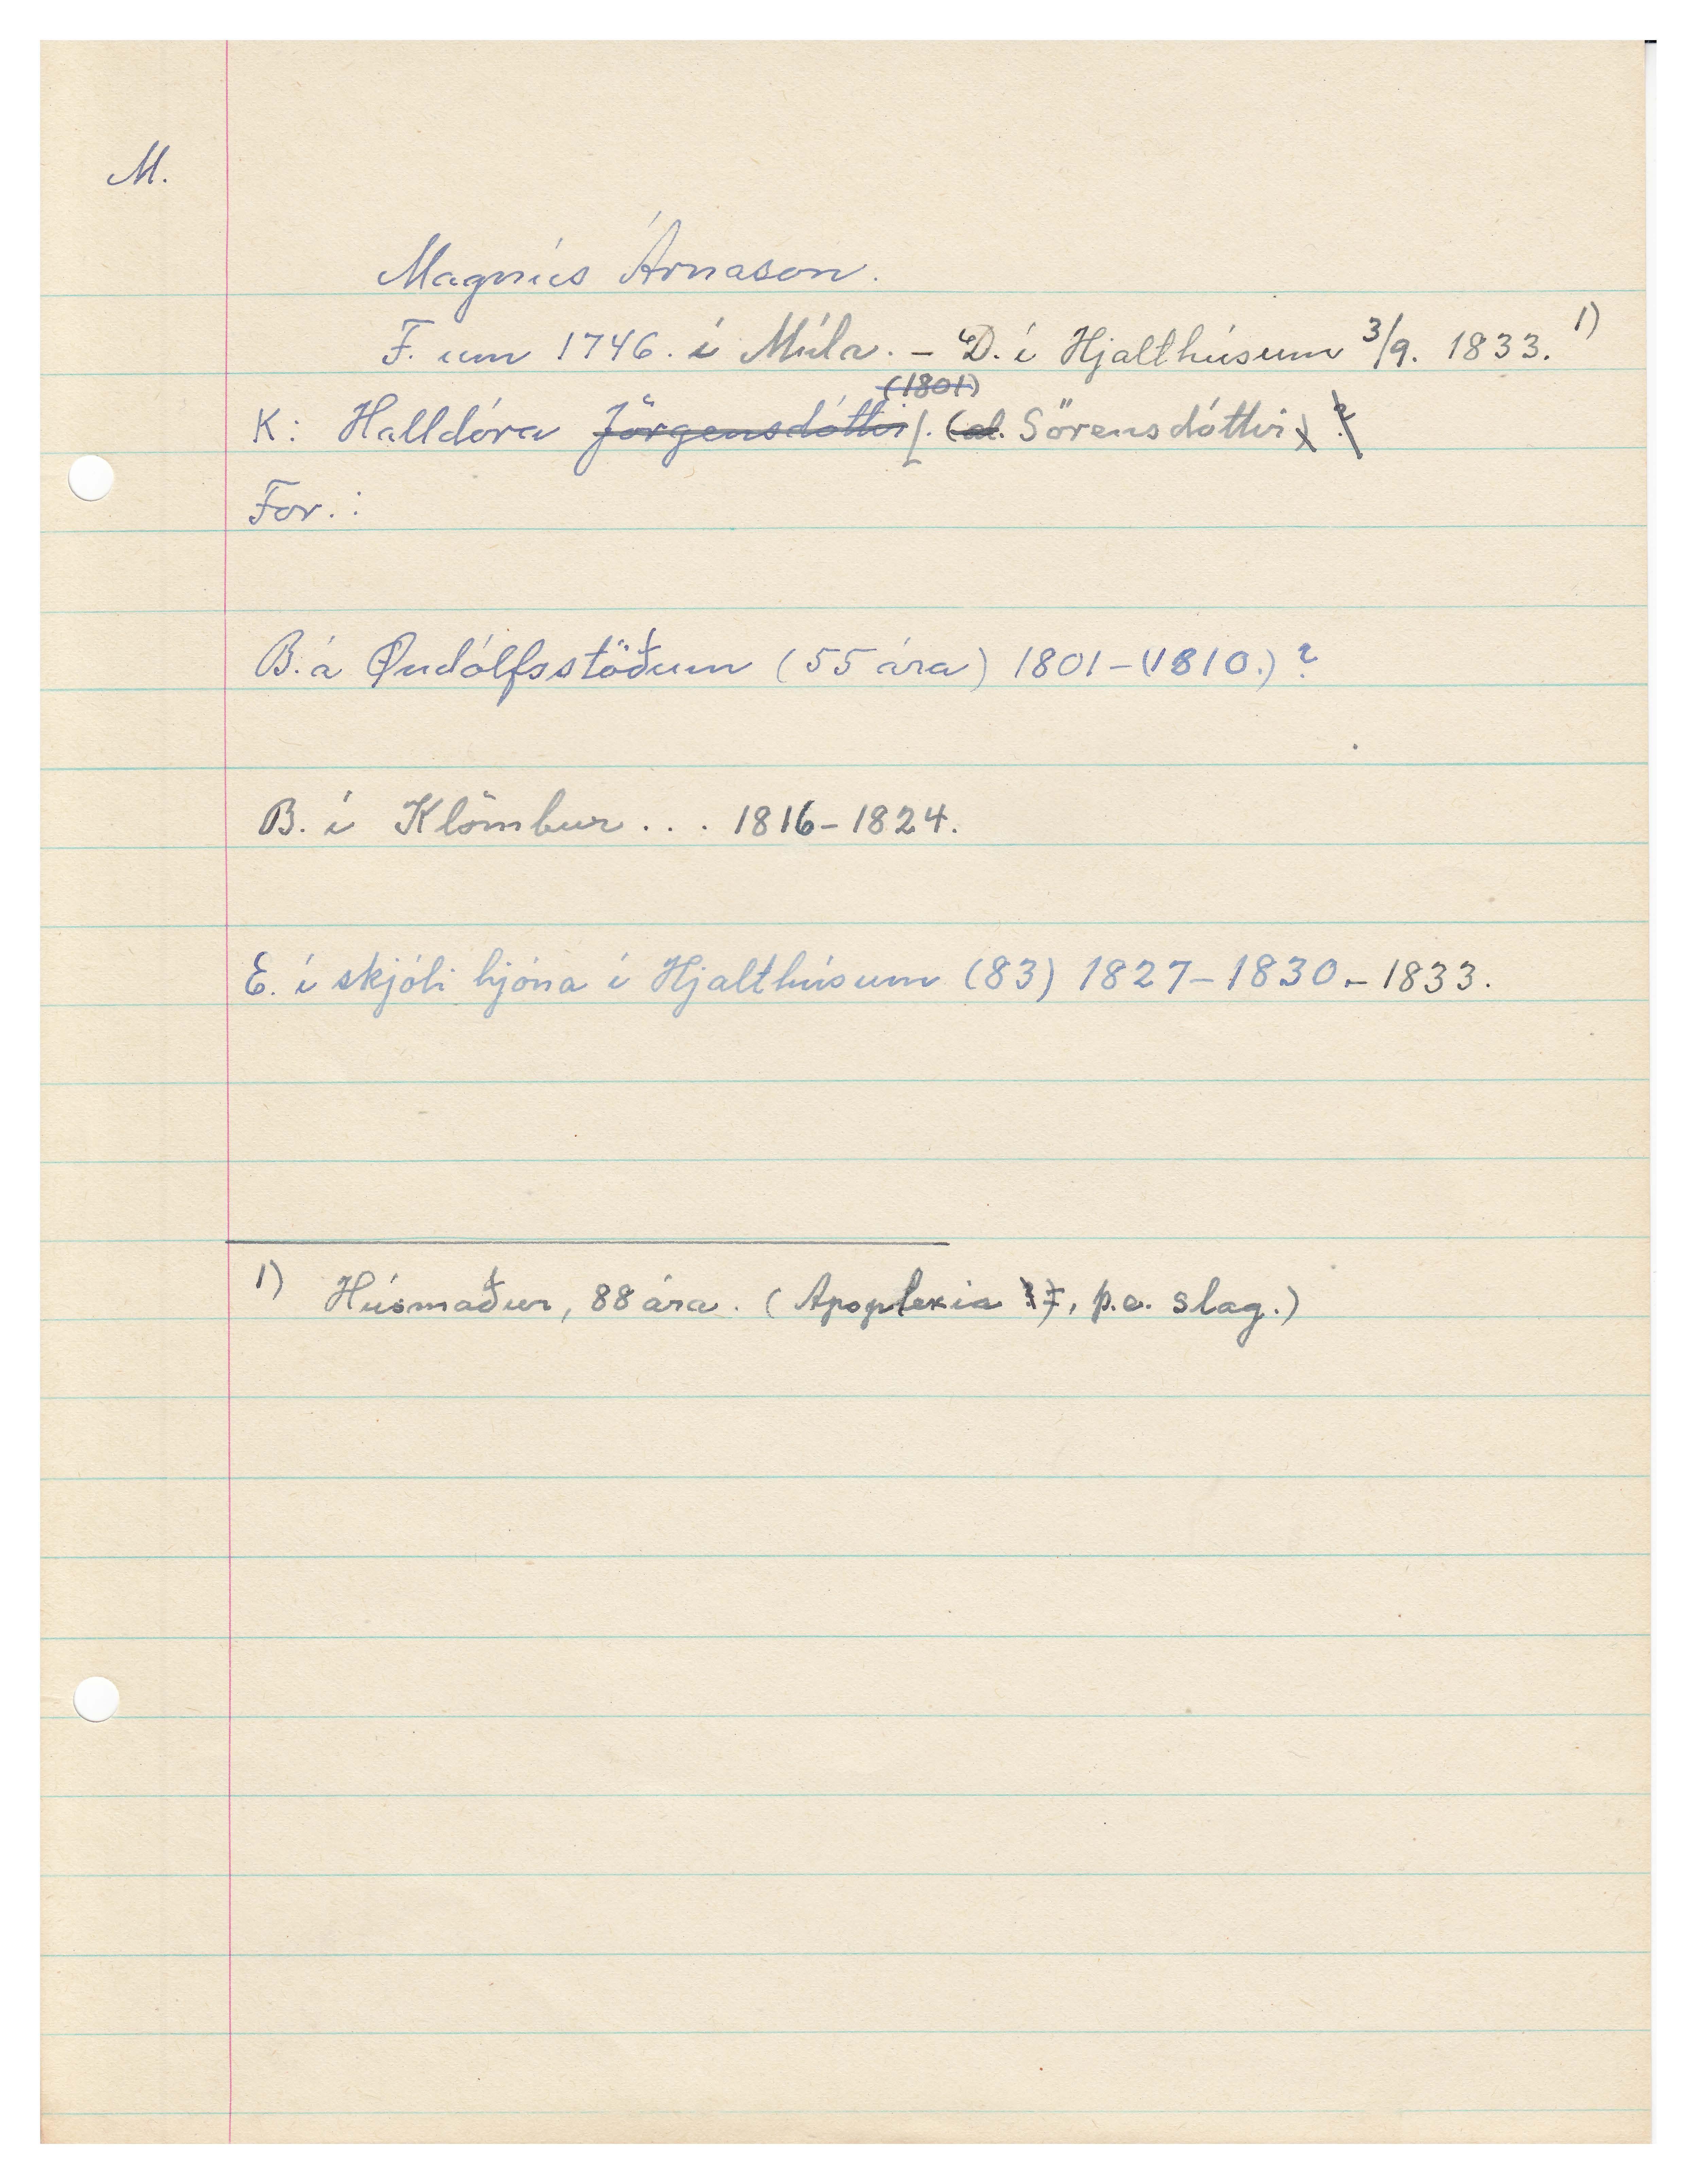 M.
Magnús Árnason.
F. um 1746. í Múla. – D. í Hjalthúsum 3/9. 1833. 1)
(1801)
K: Halldóra Jörgensdóttir. (al. Sörensdóttir) ?
For.:
B. á Öndólfsstöðum (55 ára) 1801–(1810.) ?
B. í Klömbur... 1816–1824.
E. í skjóli hjóna í Hjalthúsum (83) 1827–1830.–1833.
1) Húsmaður, 88 ára. (Apoplexia, þ.e. slag.)